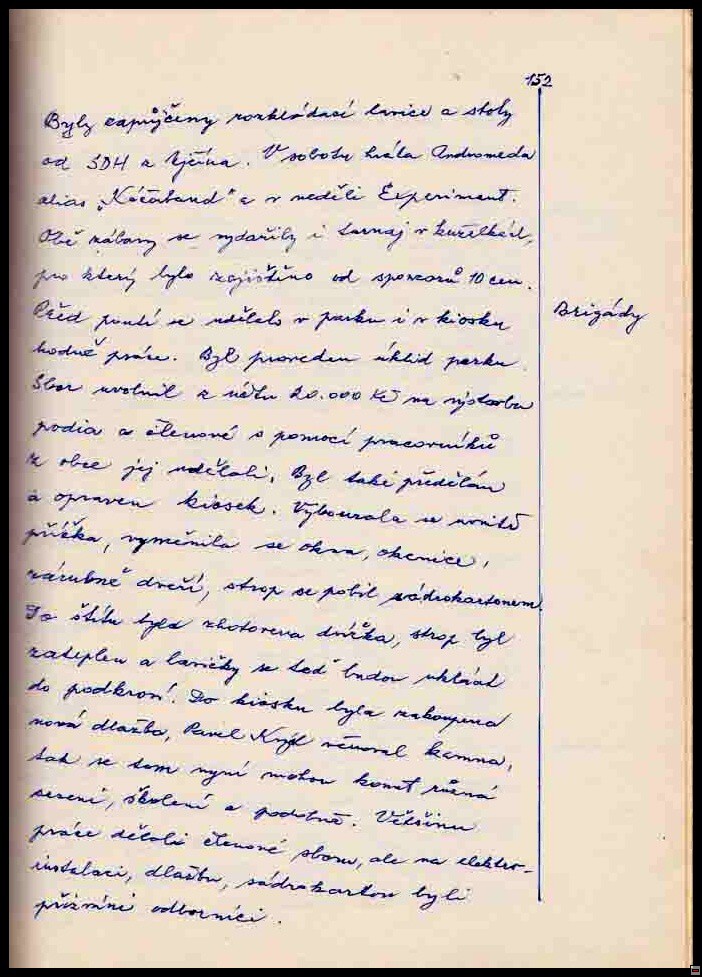 152
Byly zapůjčeny rozkládací lavice a stoly
od SDH z Kjčína. V sobotu hrála Andromeda
alias "Káčaband" a v neděli Experiment.
Obě zábavy se vydařily i turnaj v kuželkách,
pro který bylo zajištěno od sponzorů 10 cen.
Brigády
Před poutí se udělalo v parku i v kiosku
hodně práce. Byl proveden úklid parku.
Sbor uvolnil z účtu 20.000 Kč na výstavbu
podia a členové s pomocí pracovníků
z obce jej udělali. Byl také předělán
a opraven kiosek. Vybourala se uvnitř
příčka, vyměnila se okna, okenice,
zárubně dveří, strop se pobil sádrokartonem.
Do štítu byla zhotovena dvířka, strop byl
zateplen a lavičky se teď budou ukládat
do podkroví. Do kiosku byla zakoupena
nová dlažba, Pavel věnoval kamna,
tak se tam nyní mohou konat různá
sezení, školení a podobně. Většinu
práce dělali členové sboru, ale na elektro-
instalaci, dlažbu, sádrokarton byli
přizváni odborníci.